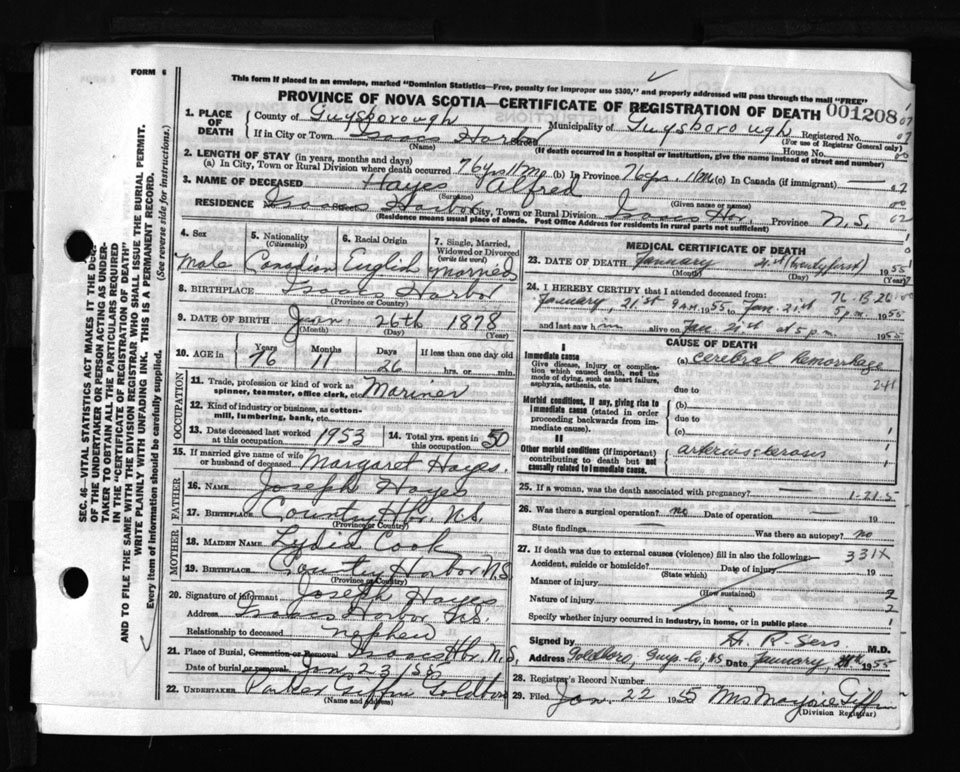 FORM 6
This form if placed in an envelope, marked "Dominion Statistics—Free, penalty for improper use $300," and properly addressed will pass through the mail "FREE"
PROVINCE OF NOVA SCOTIA—CERTIFICATE OF REGISTRATION OF DEATH 001208
1. PLACE OF DEATH
County of Guysborough Municipality of Guysborough Registered No.
(For use of Registrar General only)
If in City or Town Isaacs Harbor Street House No.
(Name) (If death occurred in a hospital or institution, give the name instead of street and number)
2. LENGTH OF STAY (in years, months and days)
(a) In City, Town or Rural Division where death occurred 76 yrs 11 Mo (b) In Province 76 yrs. 11 Mo (c) In Canada (if immigrant)
3. NAME OF DECEASED Hayes Alfred
(Surname) (Given name or names)
RESIDENCE No. Isaacs Harbor City, Town or Rural Division Isaacs Hbr. Province N.S.
(Residence means usual place of abode. Post Office Address for residents in rural parts not sufficient)
4. Sex
Male
5. Nationality
(Citizenship)
Canadian
6. Racial Origin
English
7. Single, Married, Widowed or Divorced
(write the word)
Married
8. BIRTHPLACE Isaacs Harbor
(Province or Country)
9. DATE OF BIRTH Jan. 26th 1878
(Month) (Day) (Year)
10. AGE IN Years Months Days If less than one day old
76 11 26 hrs. or min.
OCCUPATION
11. Trade, profession or kind of work as spinner, teamster, office clerk, etc. Mariner
12. Kind of industry or business, as cotton-mill, lumbering, bank, etc.
13. Date deceased last worked at this occupation 1953
14. Total yrs. spent in this occupation 50
15. If married give name of wife or husband of deceased Margaret Hayes.
FATHER
16. NAME Joseph Hayes
17. BIRTHPLACE Country Hbr. N.S.
(Province or Country)
MOTHER
18. MAIDEN NAME Lydia Cook
19. BIRTHPLACE Country Harbor N.S.
(Province or Country)
20. Signature of informant Joseph Hayes
Address Isaacs Harbor N.S.
Relationship to deceased nephew
21. Place of Burial, Cremation or Removal Isaacs Hbr. N.S.
Date of burial or removal Jan 23 1955
22. UNDERTAKER Parker Giffin Goldboro
(Name and address)
MEDICAL CERTIFICATE OF DEATH
23. DATE OF DEATH January 21st (twenty first) 1955
(Month) (Day) (Year)
24. I HEREBY CERTIFY that I attended deceased from: 76-B-26
January, 21st 9 a.m. 1955 to Jan. 21st 5 p.m. 1955
and last saw him alive on Jan 21st at 5 p.m. 1955
CAUSE OF DEATH
I
Immediate cause
Give disease, injury or complication which caused death, not the mode of dying, such as heart failure, asphyxia, asthenia, etc.
(a) cerebral hemorrhage
due to
Morbid conditions, if any, giving rise to immediate cause (stated in order proceeding backwards from immediate cause).
(b)
due to
(c)
II
Other morbid conditions (if important) contributing to death but not causally related to immediate cause.
arteriosclerosis
25. If a woman, was the death associated with pregnancy? 1-21-5
26. Was there a surgical operation? no Date of operation 19
State findings Was there an autopsy? no
27. If death was due to external causes (violence) fill in also the following: 331X
Accident, suicide or homicide? Date of injury 19
(State which)
Manner of injury
(How sustained)
Nature of injury
Specify whether injury occurred in industry, in home, or in public place
Signed by H. R. M.D.
Address Goldboro, Guys. Co., NS Date January, 1955
28. Registrar's Record Number
29. Filed Jan. 22 1955 Mrs Marjorie Giffin
(Division Registrar)
SEC. 46—VITAL STATISTICS ACT MAKES IT THE
OF THE UNDERTAKER OR PERSON ACTING AS UNDER-
TAKER TO OBTAIN ALL THE PARTICULARS REQUIRED
IN THE "CERTIFICATE OF REGISTRATION OF DEATH"
AND TO FILE THE SAME WITH THE DIVISION REGISTRAR WHO SHALL ISSUE THE BURIAL PERMIT.
WRITE PLAINLY WITH UNFADING INK. THIS IS A PERMANENT RECORD.
Every item of information should be carefully supplied. (See reverse side for instructions).